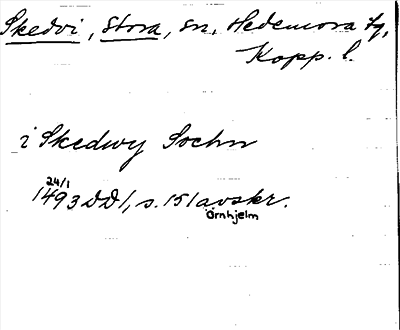 Skedvi, Stora, sn, Hedemora tg,
Kopp. l.
i Skedwy Sochn
24/1
1493 DD1, s. 151 avskr.
Örnhjelm